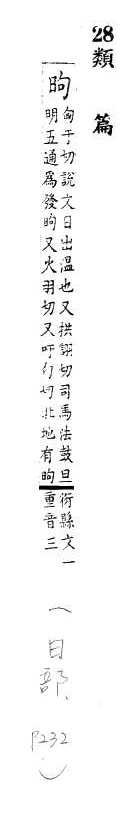 28 類 篇
昫
匈于切說文日出温也又拱詡切司馬法鼓旦
明五通爲發昫又火羽切又吁句切北地有昫
衍縣文一
重音三
（日部. P232）